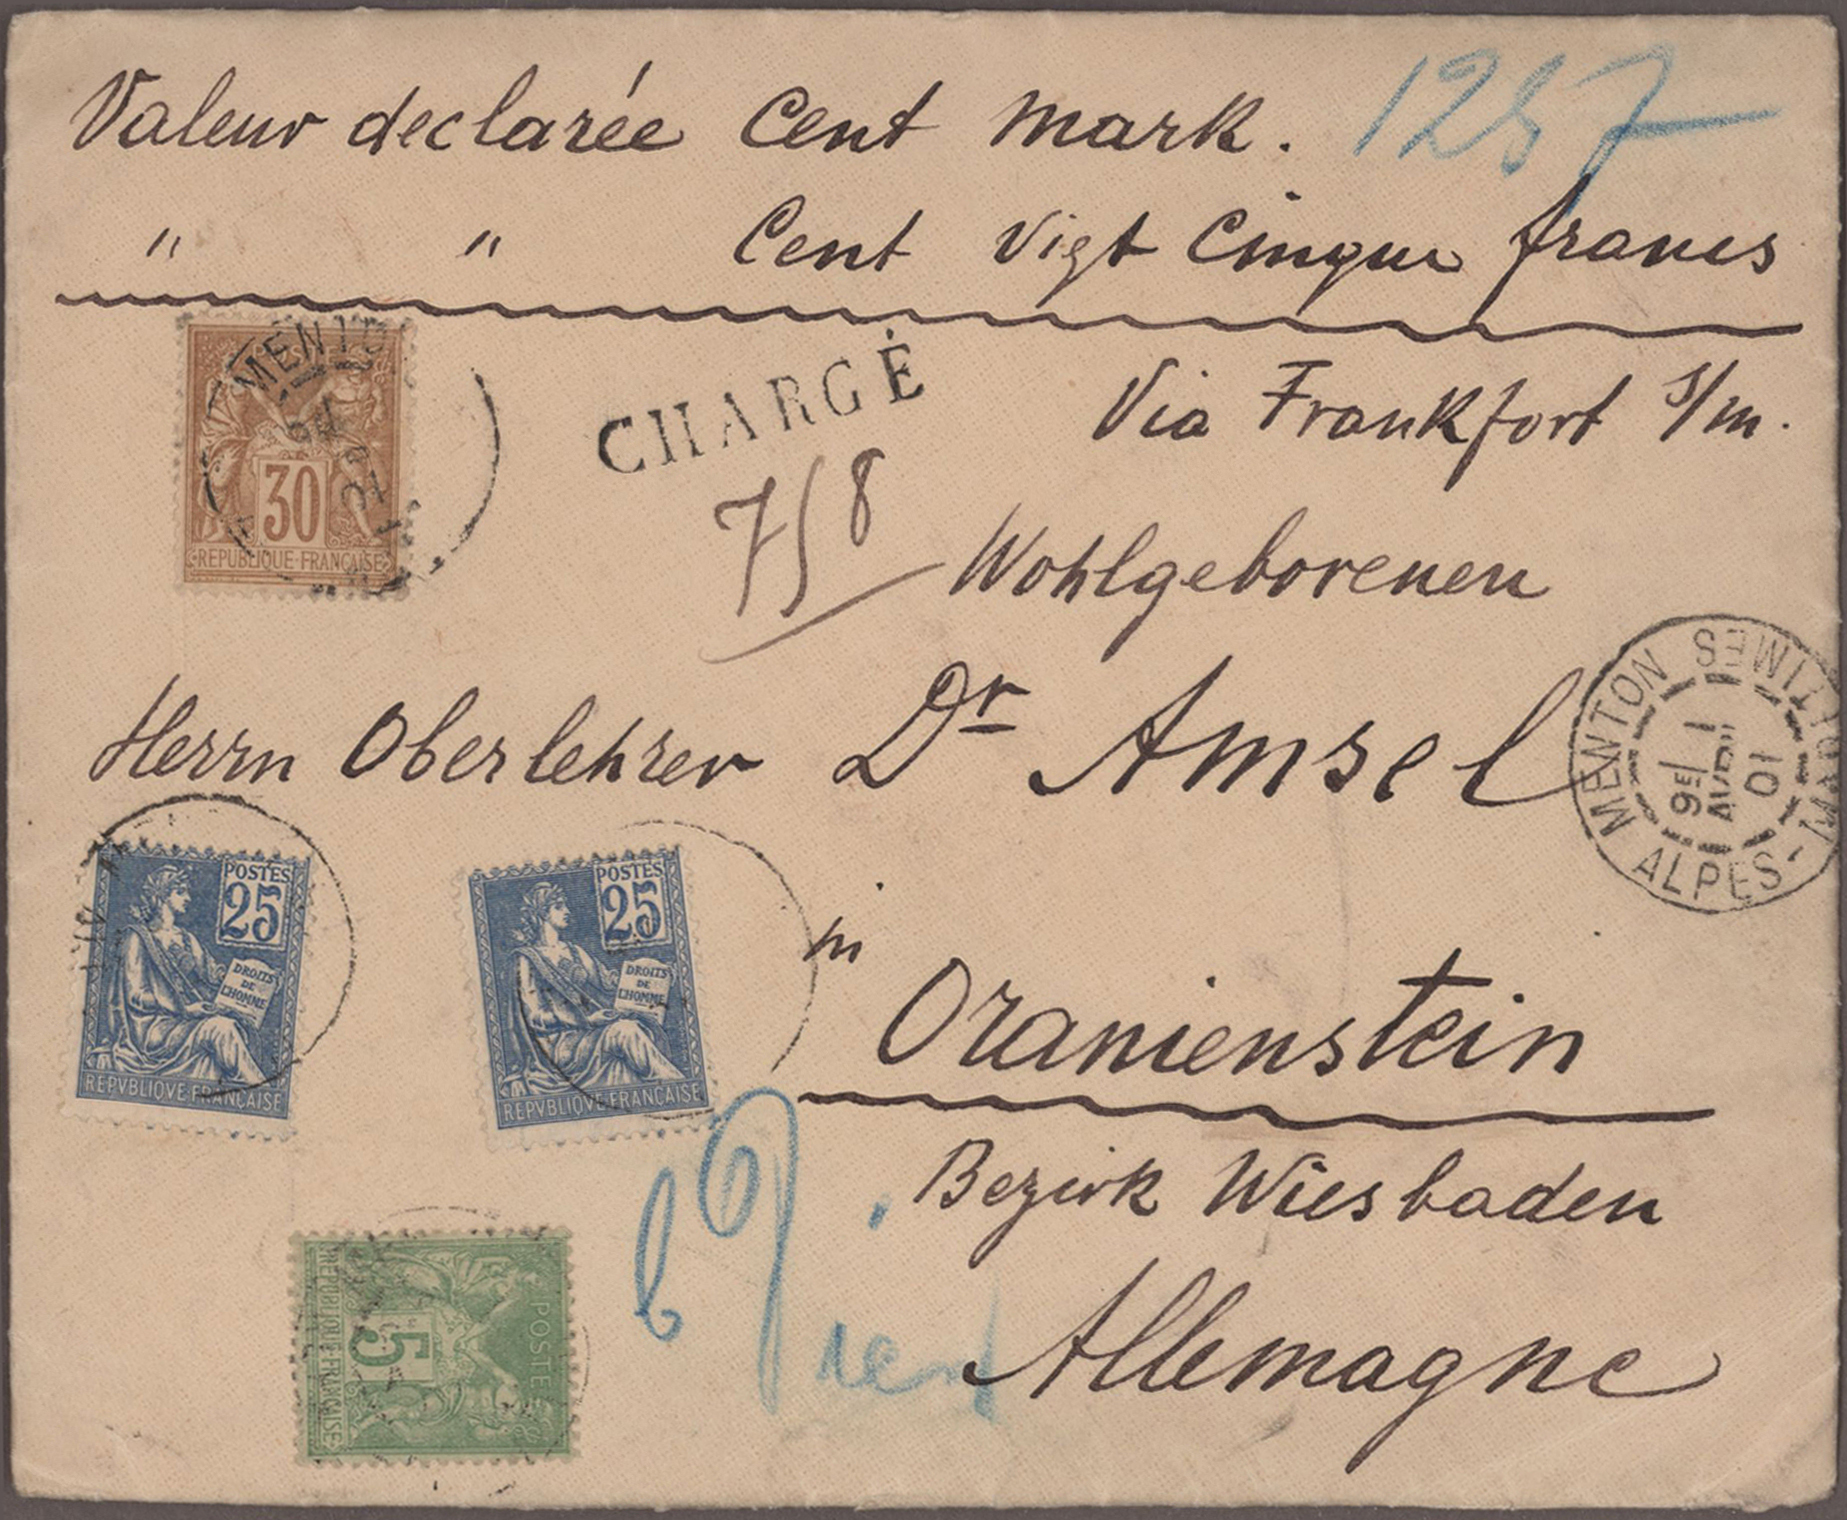 Valeur declarée Cent Mark. 1257
" " Cent vigt Cinque francs
MENTON
30
REPUBLIQUE FRANÇAISE
CHARGÉ
Via Frankfort s/m.
758
Wohlgeborenen
Herrn Oberlehrer Dr Amsel
MENTON ALPES-MARITIMES
9E 1
AVRIL
01
POSTES
25
DROITS
DE
L'HOMME
REPVBLIQVE FRANÇAISE
POSTES
25
DROITS
DE
L'HOMME
REPVBLIQVE FRANÇAISE
in
Oranienstein
Bezirk Wiesbaden
Allemagne
POSTES
5
REPUBLIQUE FRANÇAISE